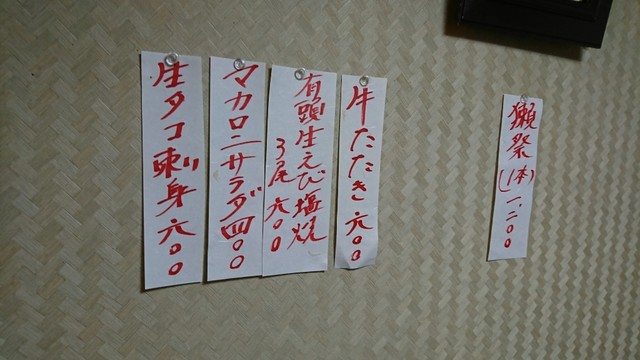 獺祭(1本)一、二〇〇
牛たたき六〇〇
有頭生えび塩焼
3尾六〇〇
マカロニサラダ四〇〇
生タコ刺身六〇〇